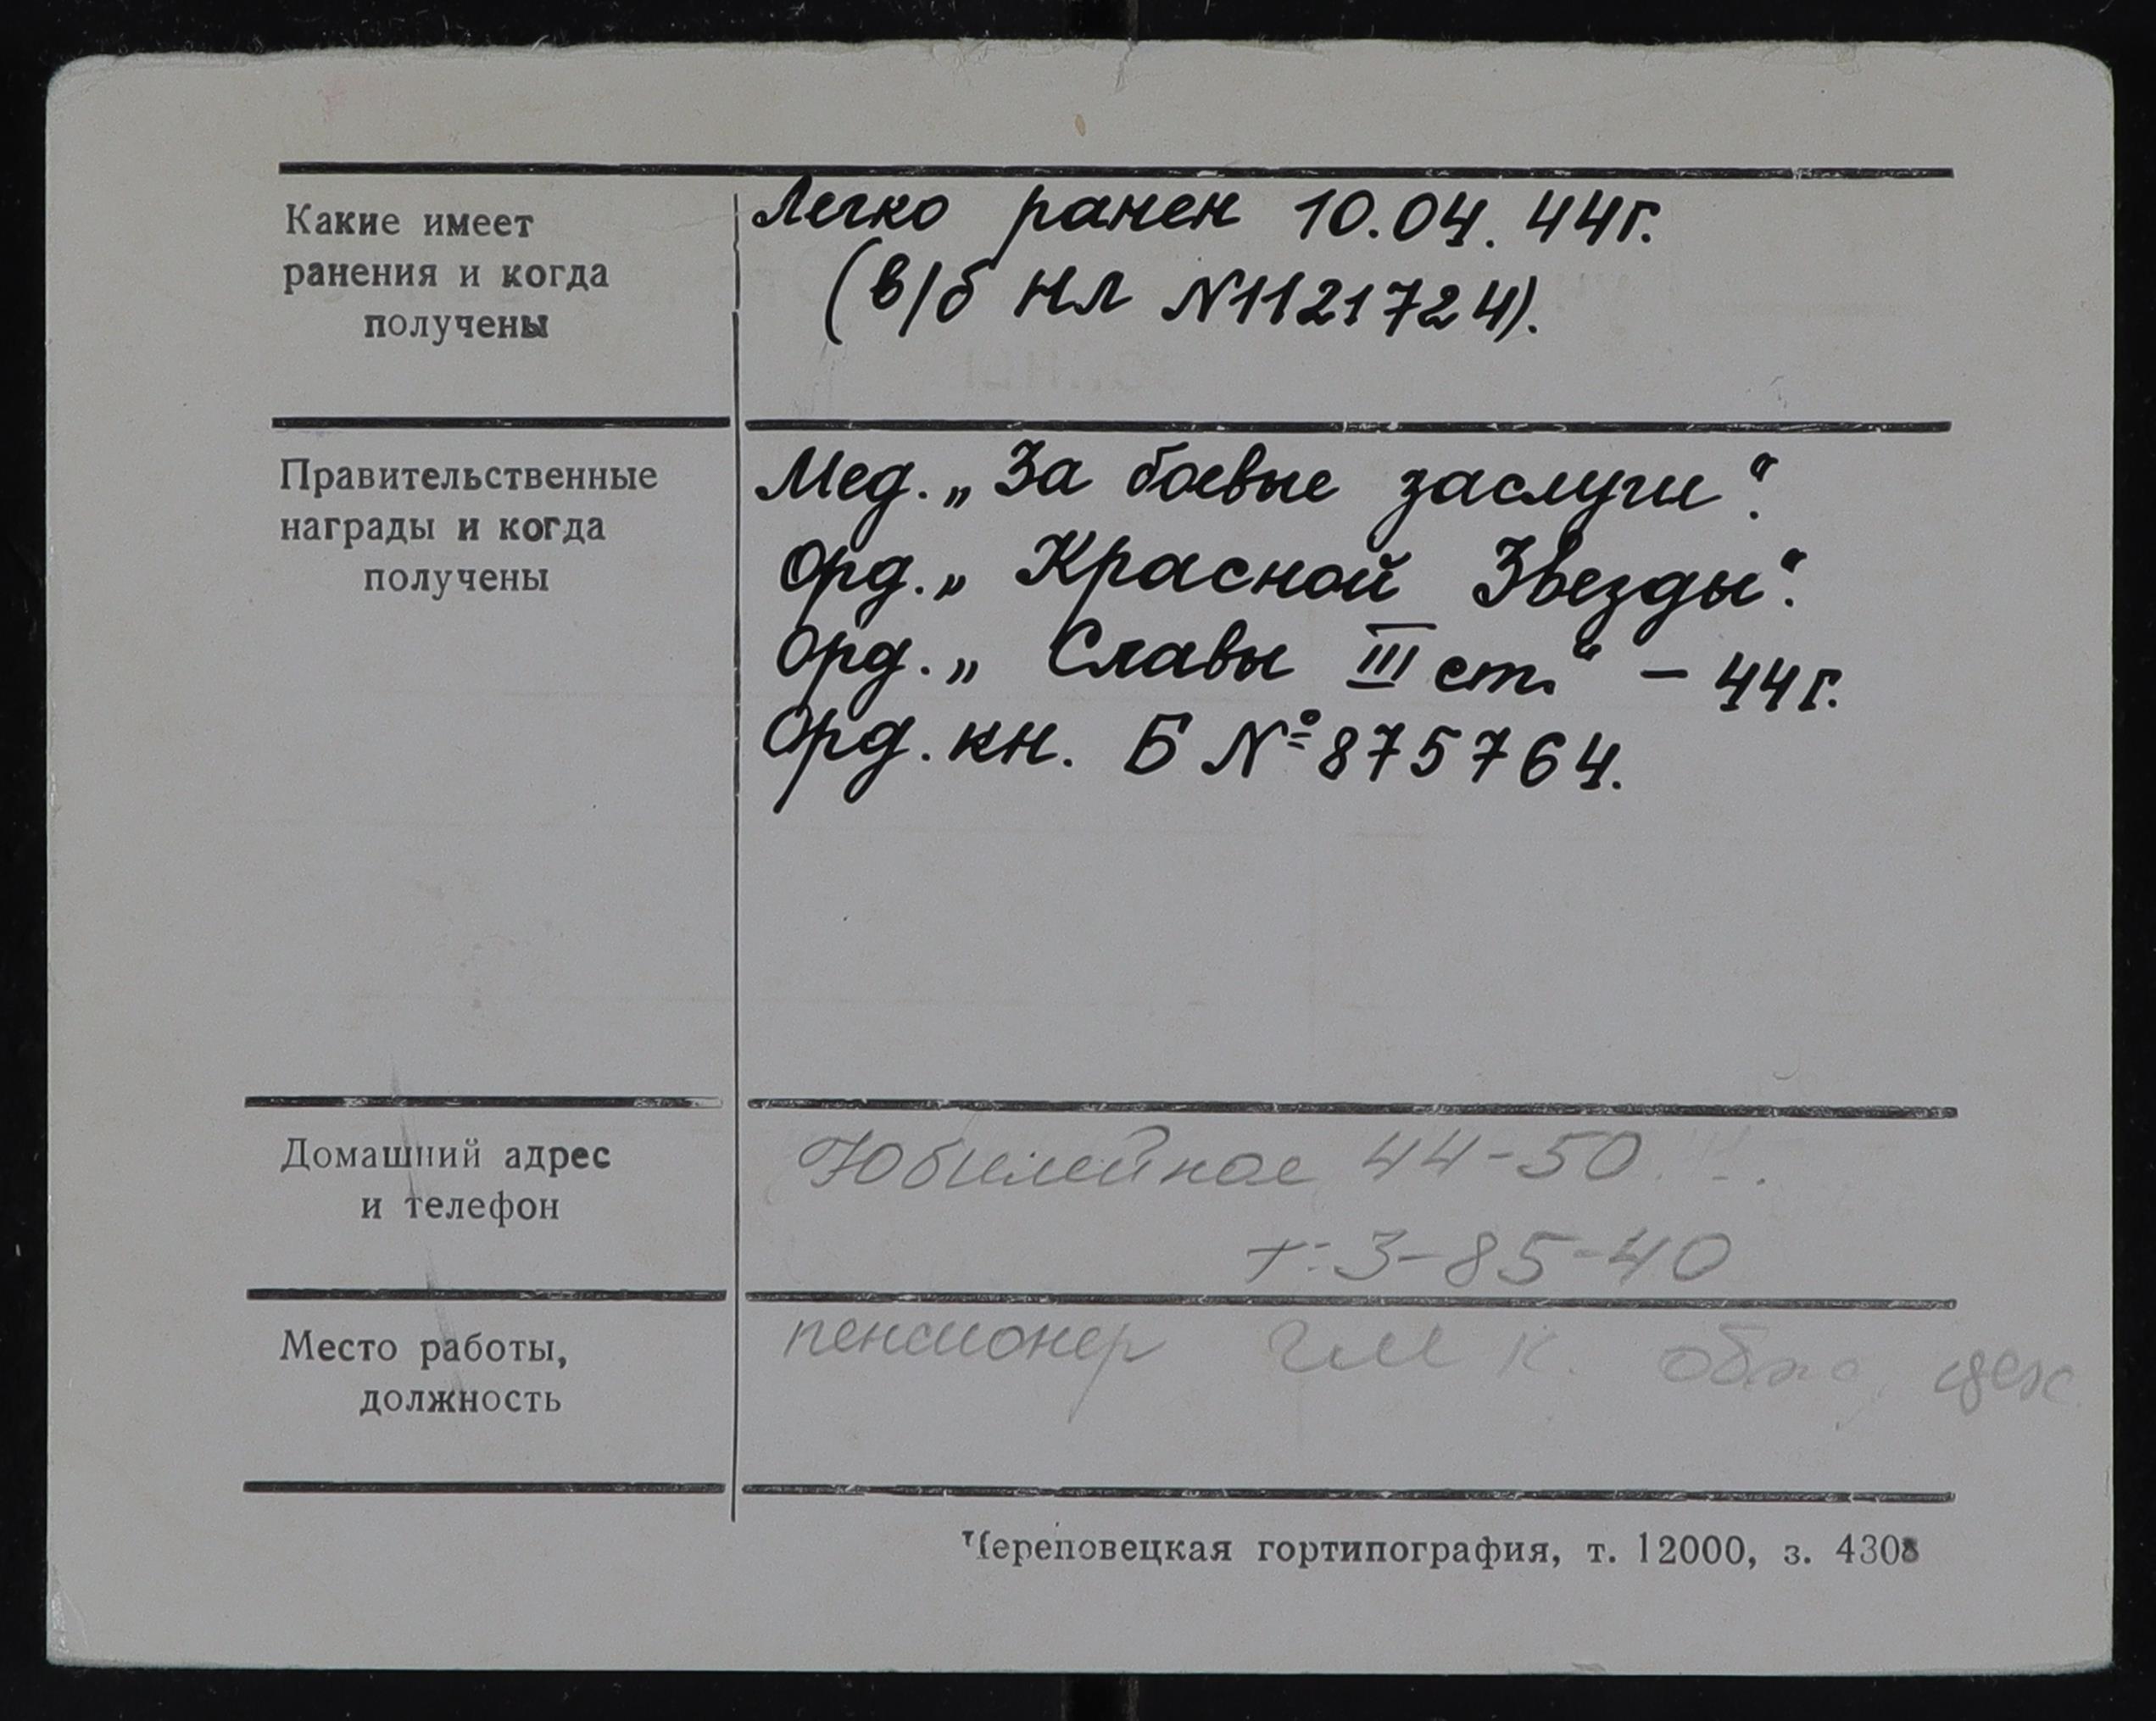 Какие имеет
ранения и когда
получены
Легко ранен 10.04.44г.
(в/б нл N1121724).
Правительственные
награды и когда
получены
Мед. „За боевые заслуги“.
Орд. „Красной Звезды“.
Орд. „Славы III ст.“ – 44г.
Орд. кн. Б № 875764.
Домашний адрес
и телефон
Юбилейная 44-50
т. 3-85-40
Место работы,
должность
пенсионер цех
Череповецкая гортипография, т. 12000, з. 4308